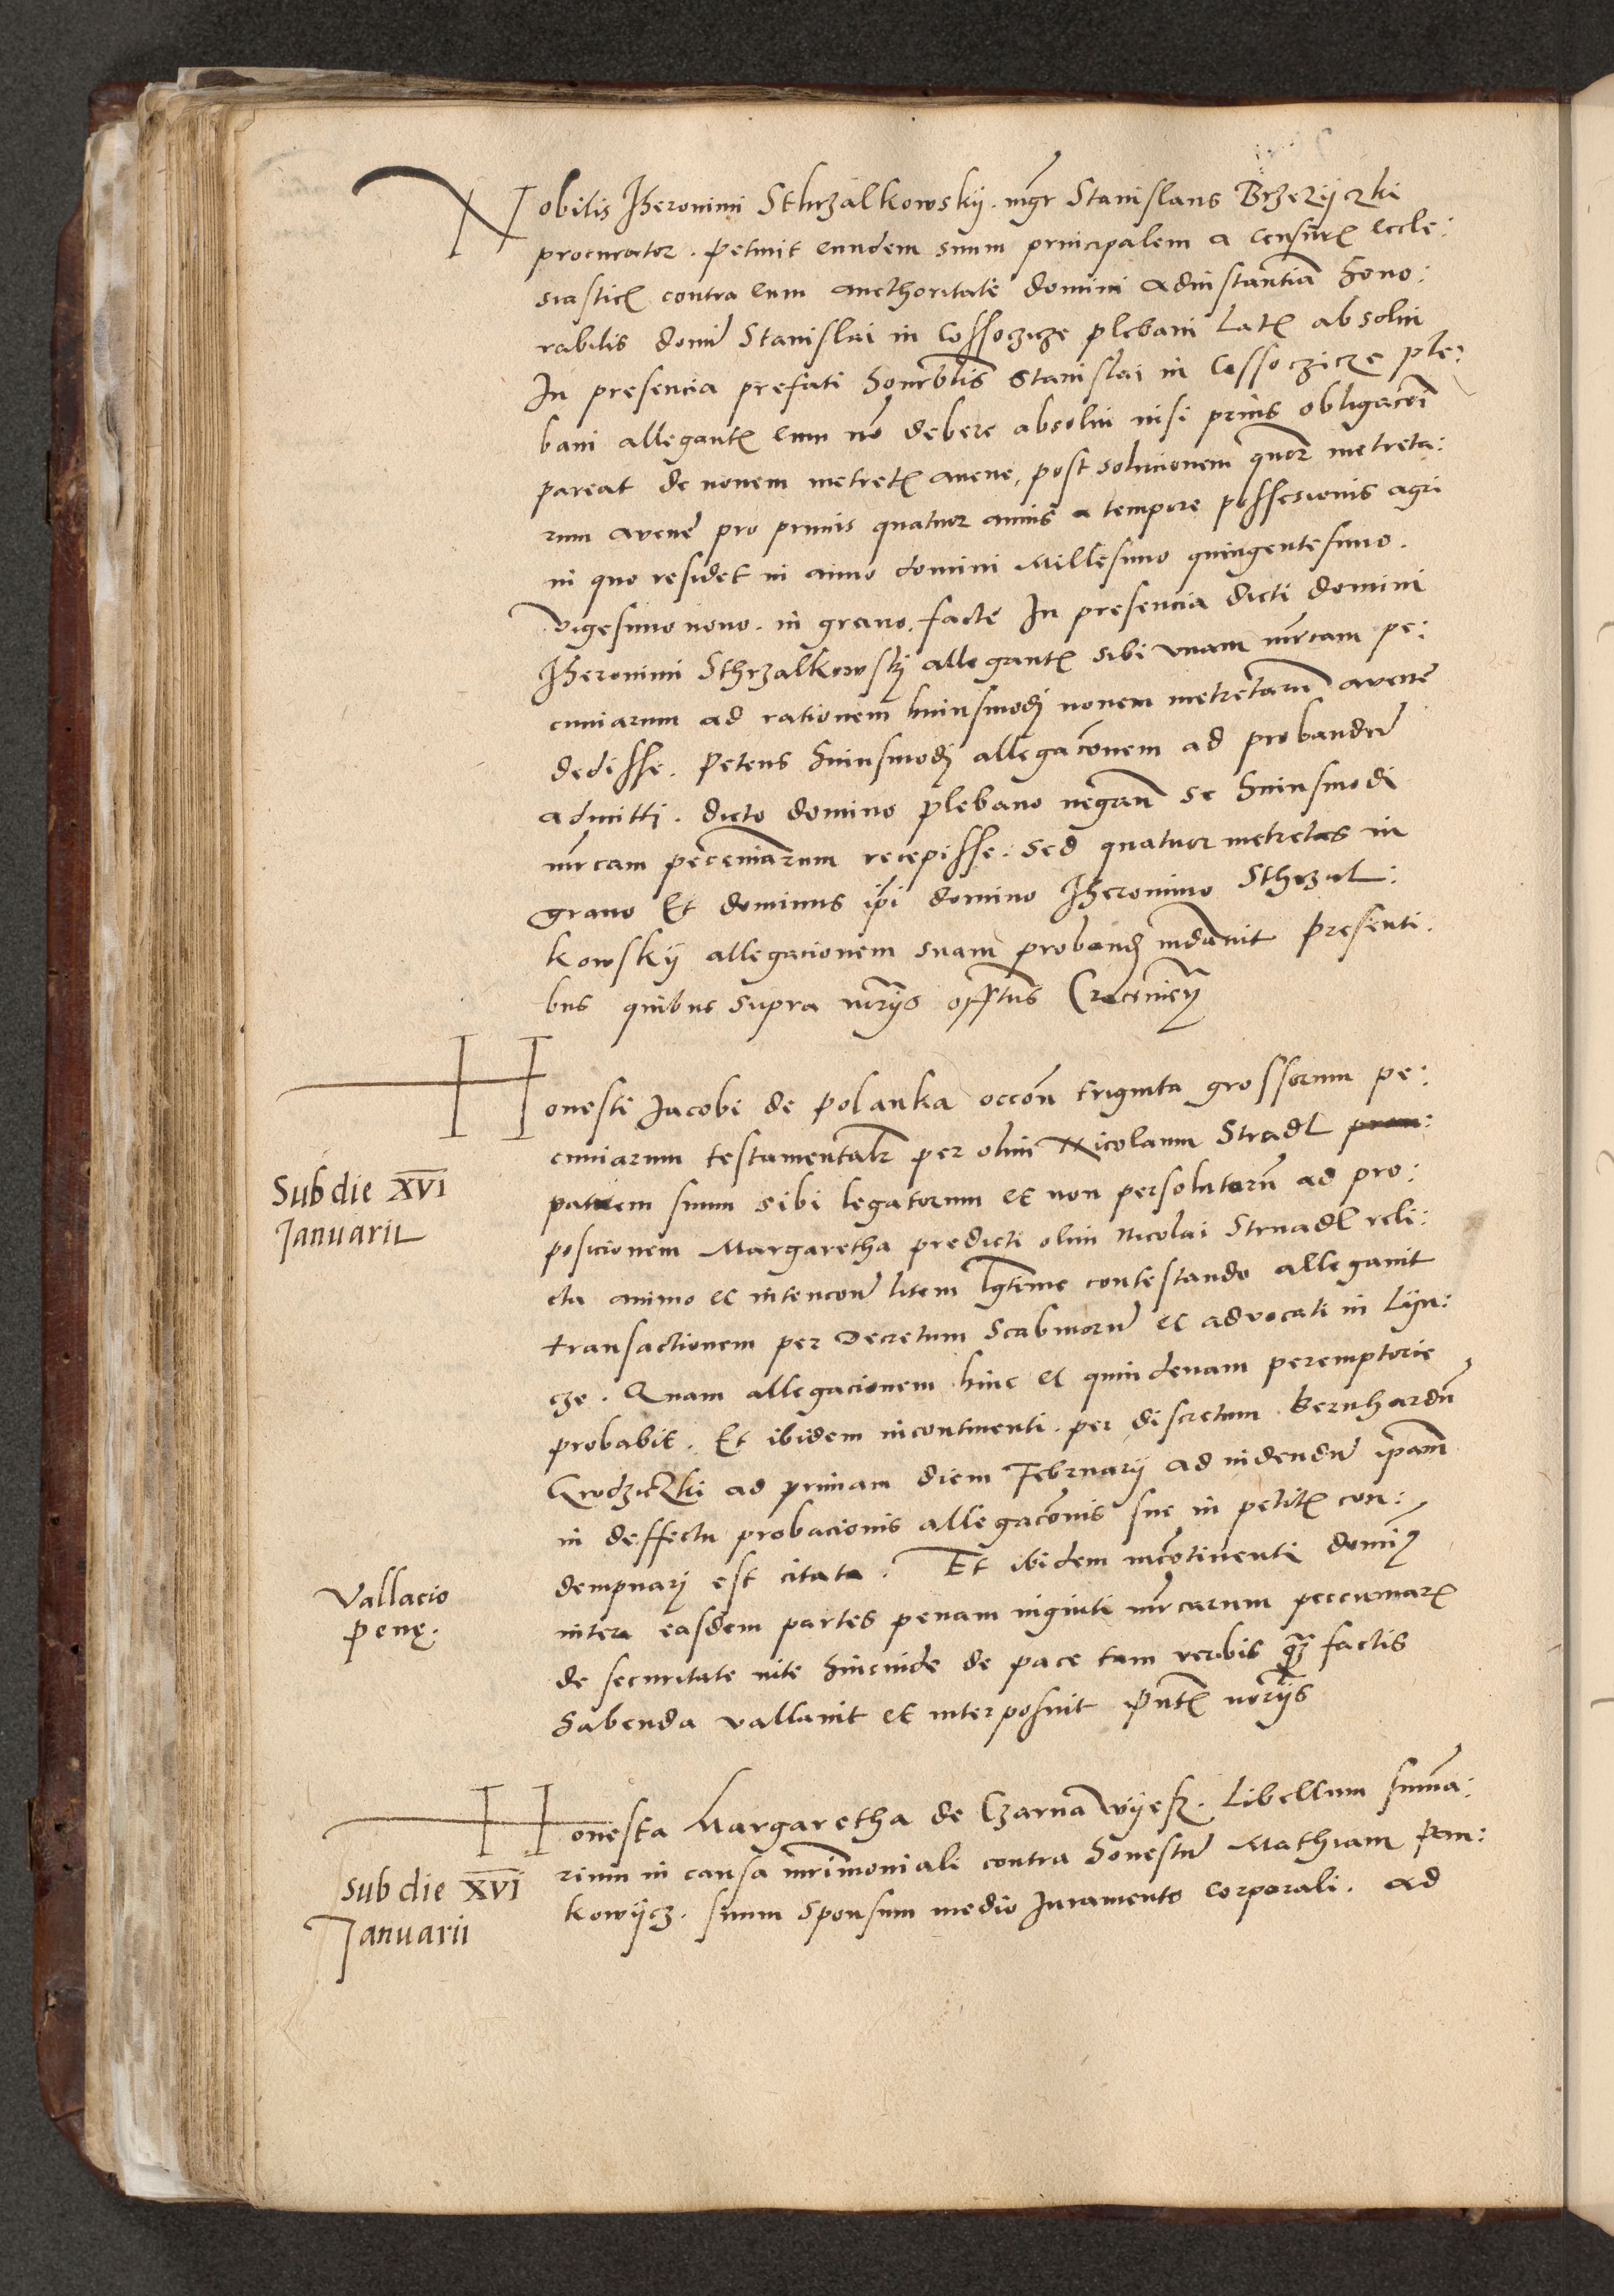 Nobilis Iheronimi Sthrzalkowskij. mgr Stanislaus Brzezijczki
procurator. Petiuit eundem suum principalem a censuris eccle:
siasticis contra eum aucthoritate domini ad instantia hono:
rabilis domi Stanislai in Cossoczicze plebani latis absolui
In presencia prefati honorablis Stanislai in Cossoczicze ple:
bani allegantis eum no debere absolui nisi prius obligacoi
pareat de nouem metretis auene, post solucionem quor metreta:
rum avene pro primis quatuor annis a tempore possessionis agri
in quo residet in anno domini Millesimo quingentesimo.
vigesimo nono. in grano. facte In presencia dicti domini
Iheronimi Sthrzalkowskj allegantis sibi vnam mrcam pe:
cuniarum ad rationem huiusmodj nouem metretaru avene
dedisse. Petens huiusmodj allegaconem ad probandu
admitti. dicto domino plebano negan se huiusmodi
mrcam peceniarum recepisse: Sed quatuor metretas in
grano Et dominus ipi domino Iheronimo Sthrzal:
kowskij allegacionem suam proband indauit presenti:
bus quibus supra notrijs
Honesti Iacobi de Polanka occon triginta grossorum pe:
cuniarum testamentalr per olim Nicolaum Stradl
patruem suum sibi legatorum et non persolutaru ad pro:
posicionem Margaretha predicti olim Nicolai Strnadl reli:
cta animo et intencone litem lgteme contestando allegauit
transactionem per decretum Scabinoru et advocati in Lijn:
cze. Quam allegacionem hinc et quindenam peremptorie
probabit. Et ibidem incontinenti. per discretum Bernhardu
Grodziczki ad primam diem Februarij ad uidendu ipam
in deffectu probacionis allegaconis sue in petitis con:
dempnarj est citata. Et ibidem incotinenti domi9
inter easdem partes penam uiginti mrcarum peccuniar
de securitate uite hincinde de pace tam verbis q3 factis
habenda vallauit et interposuit Pntis notrijs
Honesta Margaretha de Czarna wijesz. Libellum summa:
rium in causa mrimoniali contra honestu Mathiam Pan:
kowijcz. suum sponsum medio iuramento corporali. ad
Sub die XVI
Januarii
Vallacio
Penę.
Sub die XVI
Januarii